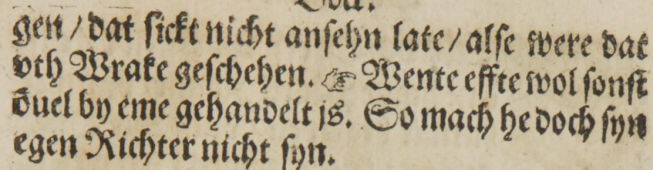 gen / dat sickt nicht ansehn late / alse were dat
vth Wrake geschehen. ☞ Wente effte wol sonst
öuel by eme gehandelt js. So mach he doch syn
egen Richter nicht syn.